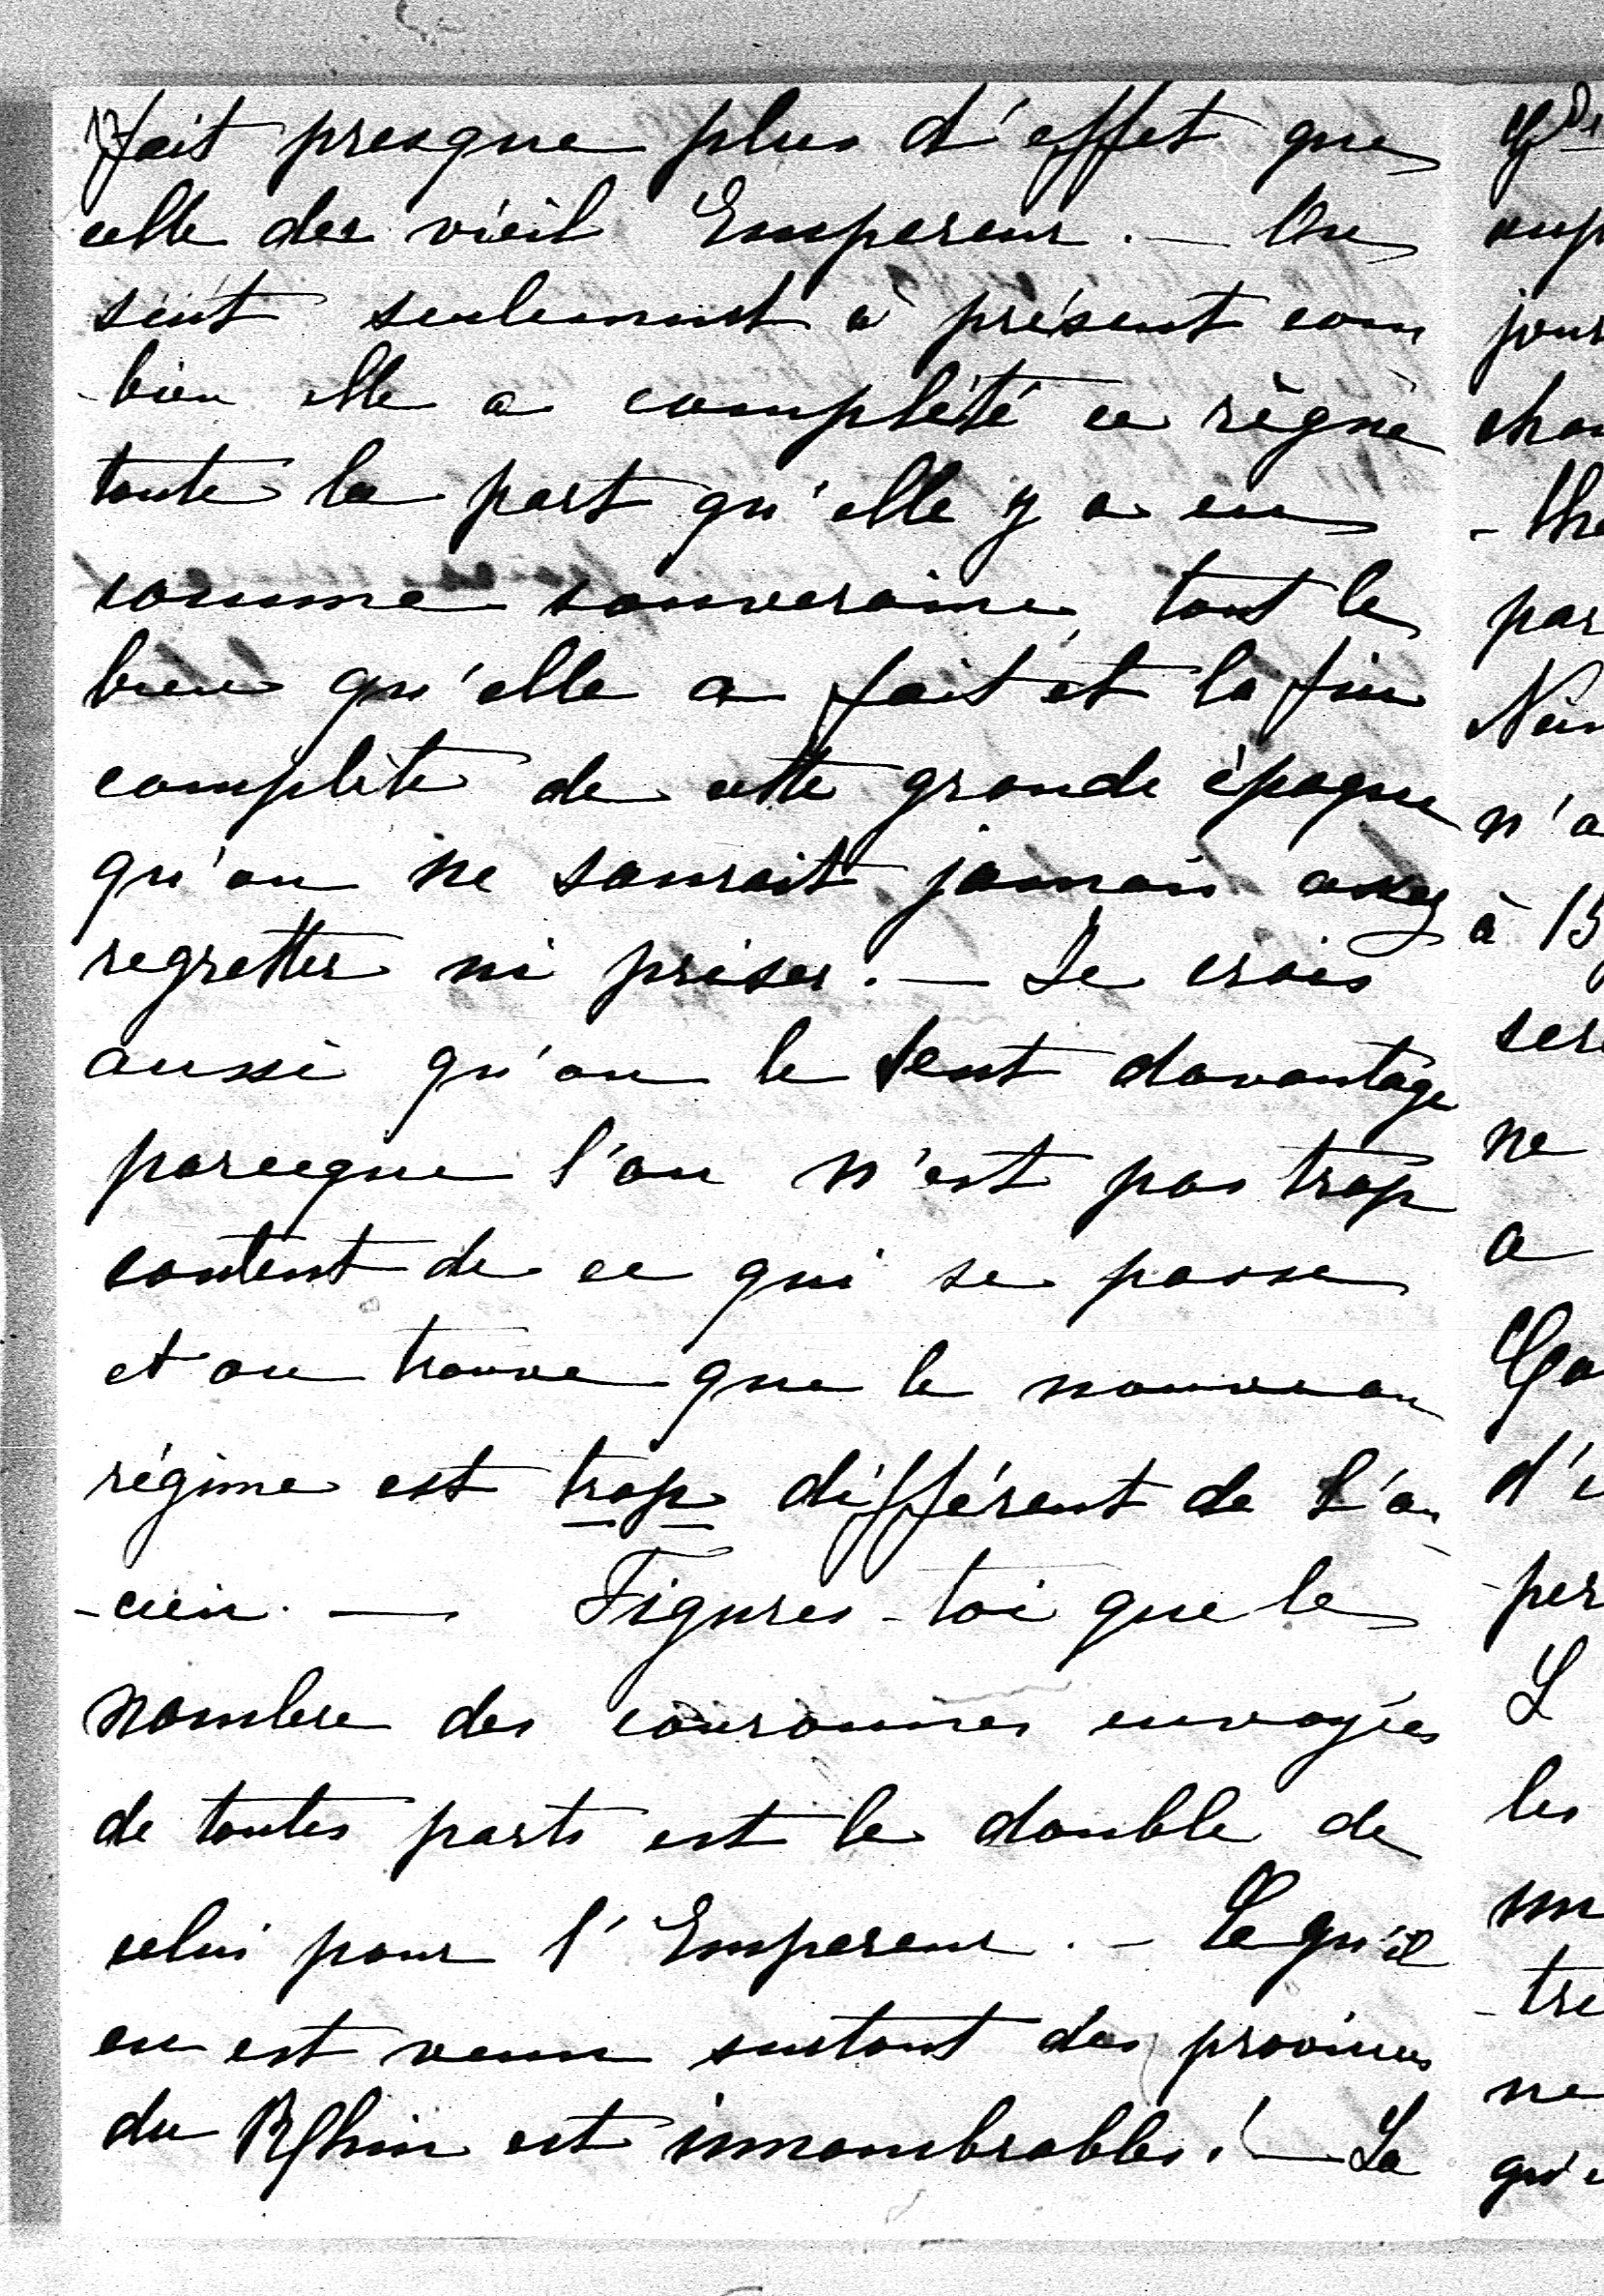 fait presque plus d'effet que
celle des vieil Empereur. — On
sent seulement à présent com
-bien elle a complété ce règne
toute la part qu'elle y a eu
comme souveraine, tout le
bien qu'elle a fait et la fin
complète de cette grande époque
qu'on ne saurait jamais assez
regretter ni priser. — Je crois
aussi qu'on le sent davantage
parceque l'on n'est pas trop
content de ce qui se passe
et on trouve que le nouveau
régime est trop différent de l'an
-cien. — Figures-toi que le
nombre des couronnes envoyées
de toutes parts est le double de
celui pour l'Empereur. — Ce qu'il
en est venu surtout des provinces
du Rhin est innombrables! — La
jour
par
n'a
à 15
ne
a
d'
per
L
les
tri
ne